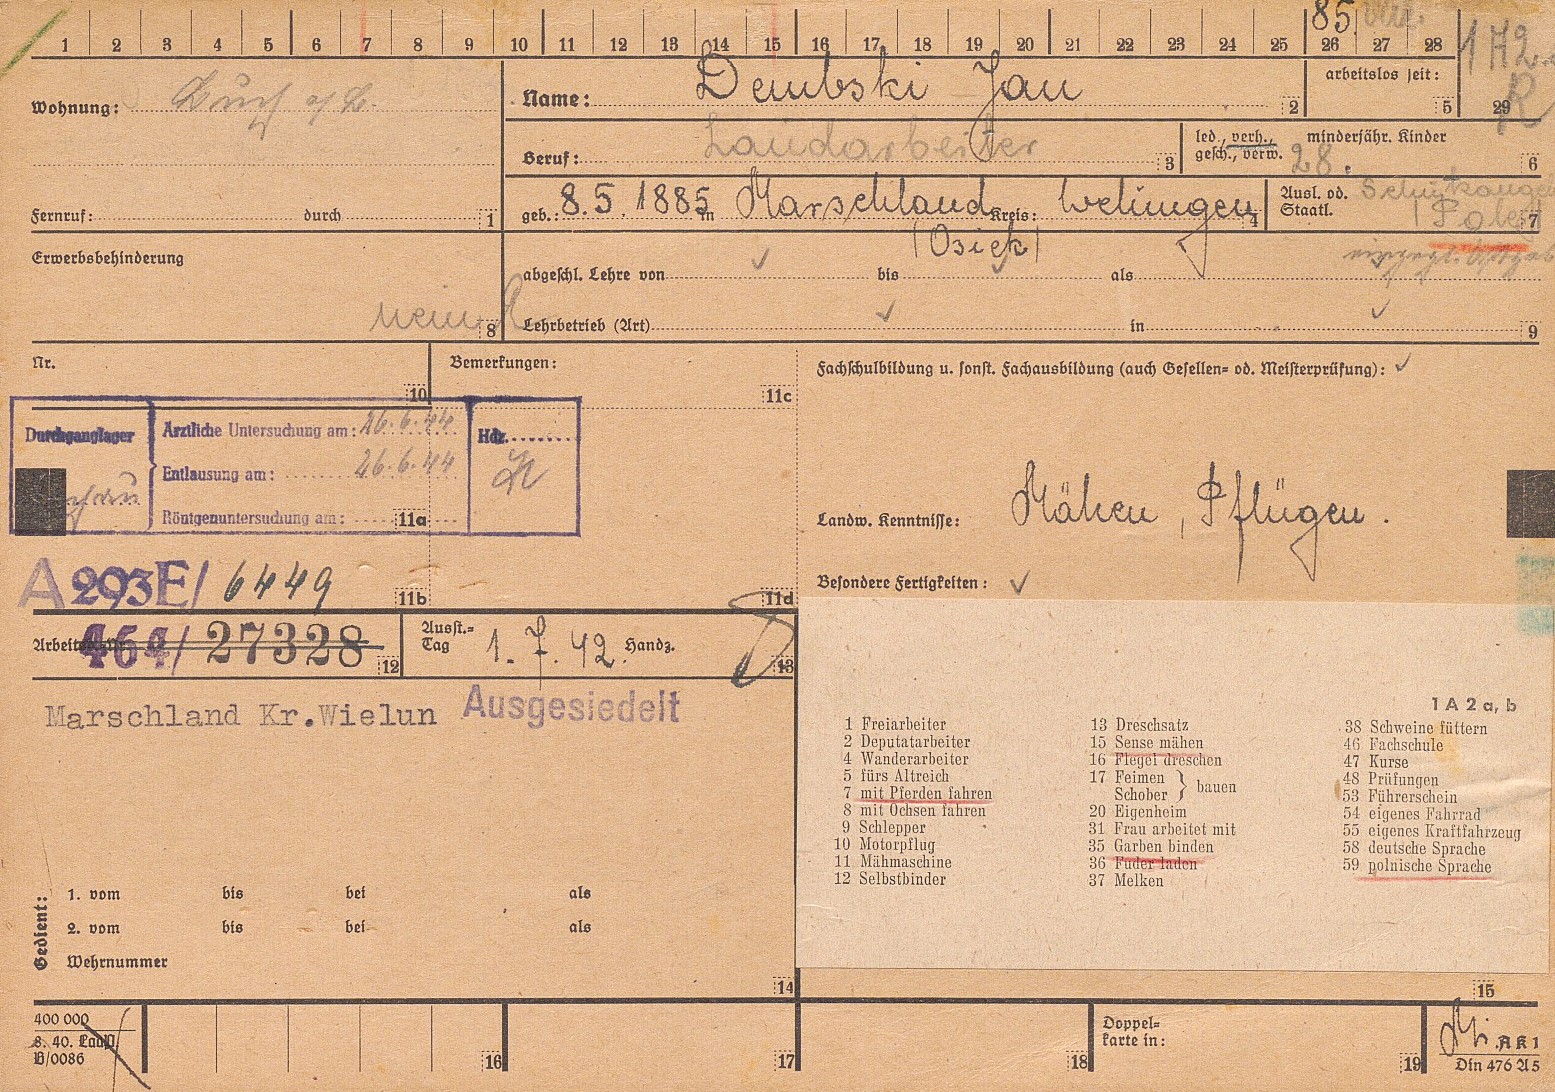 1 2 3 4 5 6 7 8 9 10 11 12 13 14 15 16 17 18 19 20 21 22 23 24 25 26 27 28
85
172
R
29
Wohnung:
Name: Dembski Jan 2
arbeitslos seit: 5
Beruf: Landarbeiter 3
led., verh., gesch., verw.
minderjähr. Kinder
28. 6
Fernruf: durch 1
geb.: 8.5.1885 in Marschland Kreis: Welungen 4
(Osiek)
Ausl. od. Staatl.
(Pole) 7
Erwerbsbehinderung
nein 8
abgeschl. Lehre von bis als
Lehrbetrieb (Art) in 9
Nr. 10
Bemerkungen: 11c
Fachschulbildung u. sonst. Fachausbildung (auch Gesellen- od. Meisterprüfung):
Durchganglager
Ärztliche Untersuchung am: 26.6.44
Entlausung am: 26.6.44
Röntgenuntersuchung am: 11a
Hdz.
Landw. Kenntnisse: Mähen, Pflügen.
Besondere Fertigkeiten:
A 293E/ 6449 11b
11d
464/ 27328 12
Ausst.-Tag 1.7.42 Handz. 13
Marschland Kr.Wielun Ausgesiedelt
1 A 2 a, b
1 Freiarbeiter
2 Deputatarbeiter
4 Wanderarbeiter
5 fürs Altreich
7 mit Pferden fahren
8 mit Ochsen fahren
9 Schlepper
10 Motorpflug
11 Mähmaschine
12 Selbstbinder
13 Dreschsatz
15 Sense mähen
16 Flegel dreschen
17 Feimen Schober } bauen
20 Eigenheim
31 Frau arbeitet mit
35 Garben binden
36 Fuder laden
37 Melken
38 Schweine füttern
46 Fachschule
47 Kurse
48 Prüfungen
53 Führerschein
54 eigenes Fahrrad
55 eigenes Kraftfahrzeug
58 deutsche Sprache
59 polnische Sprache
Gedient:
1. vom bis bei als
2. vom bis bei als
Wehrnummer
14
15
400 000
8. 40.
B/0086
16
17
18
Doppelkarte in:
19
AK 1
Din 476 A5